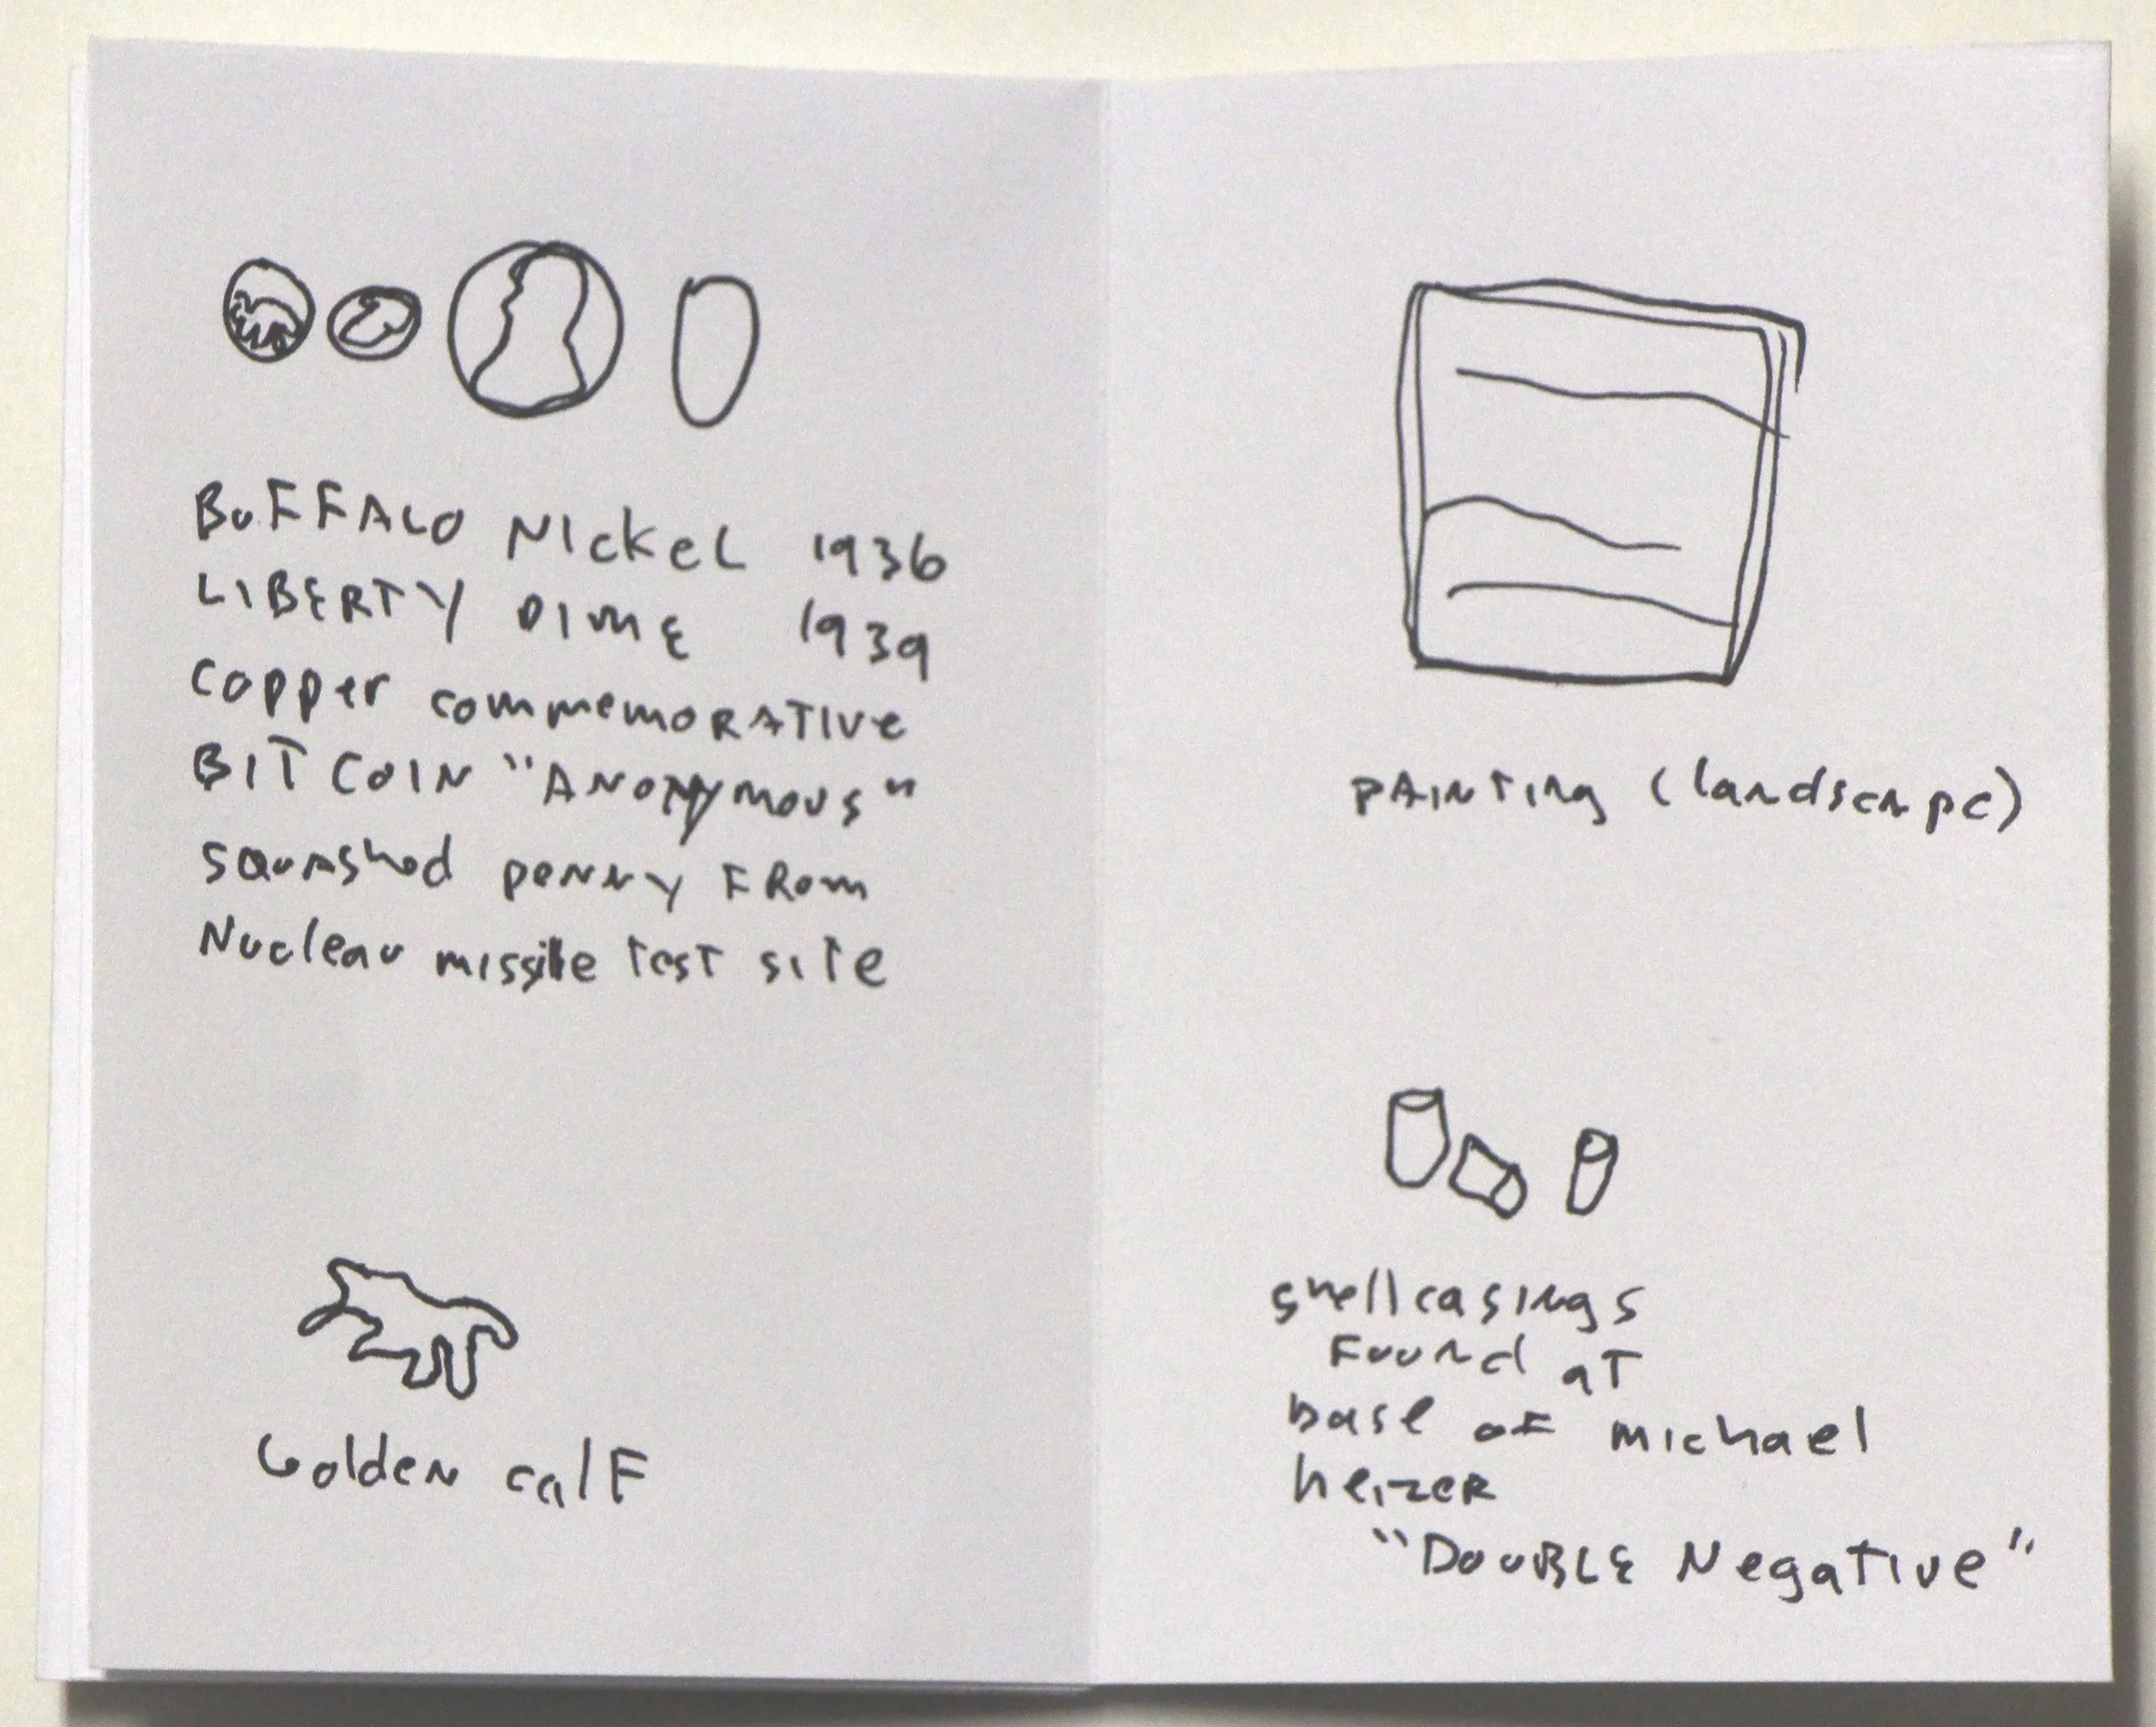 BUFFALO NICKEL 1936
LIBERTY DIME 1939
Copper commemorative
BIT COIN "ANONYMOUS"
squashed penny FROM
Nuclear missile test site
Golden calf
PAINTing (landscape)
shellcasings
Found at
base of michael
heizer
"DOUBLE Negative"